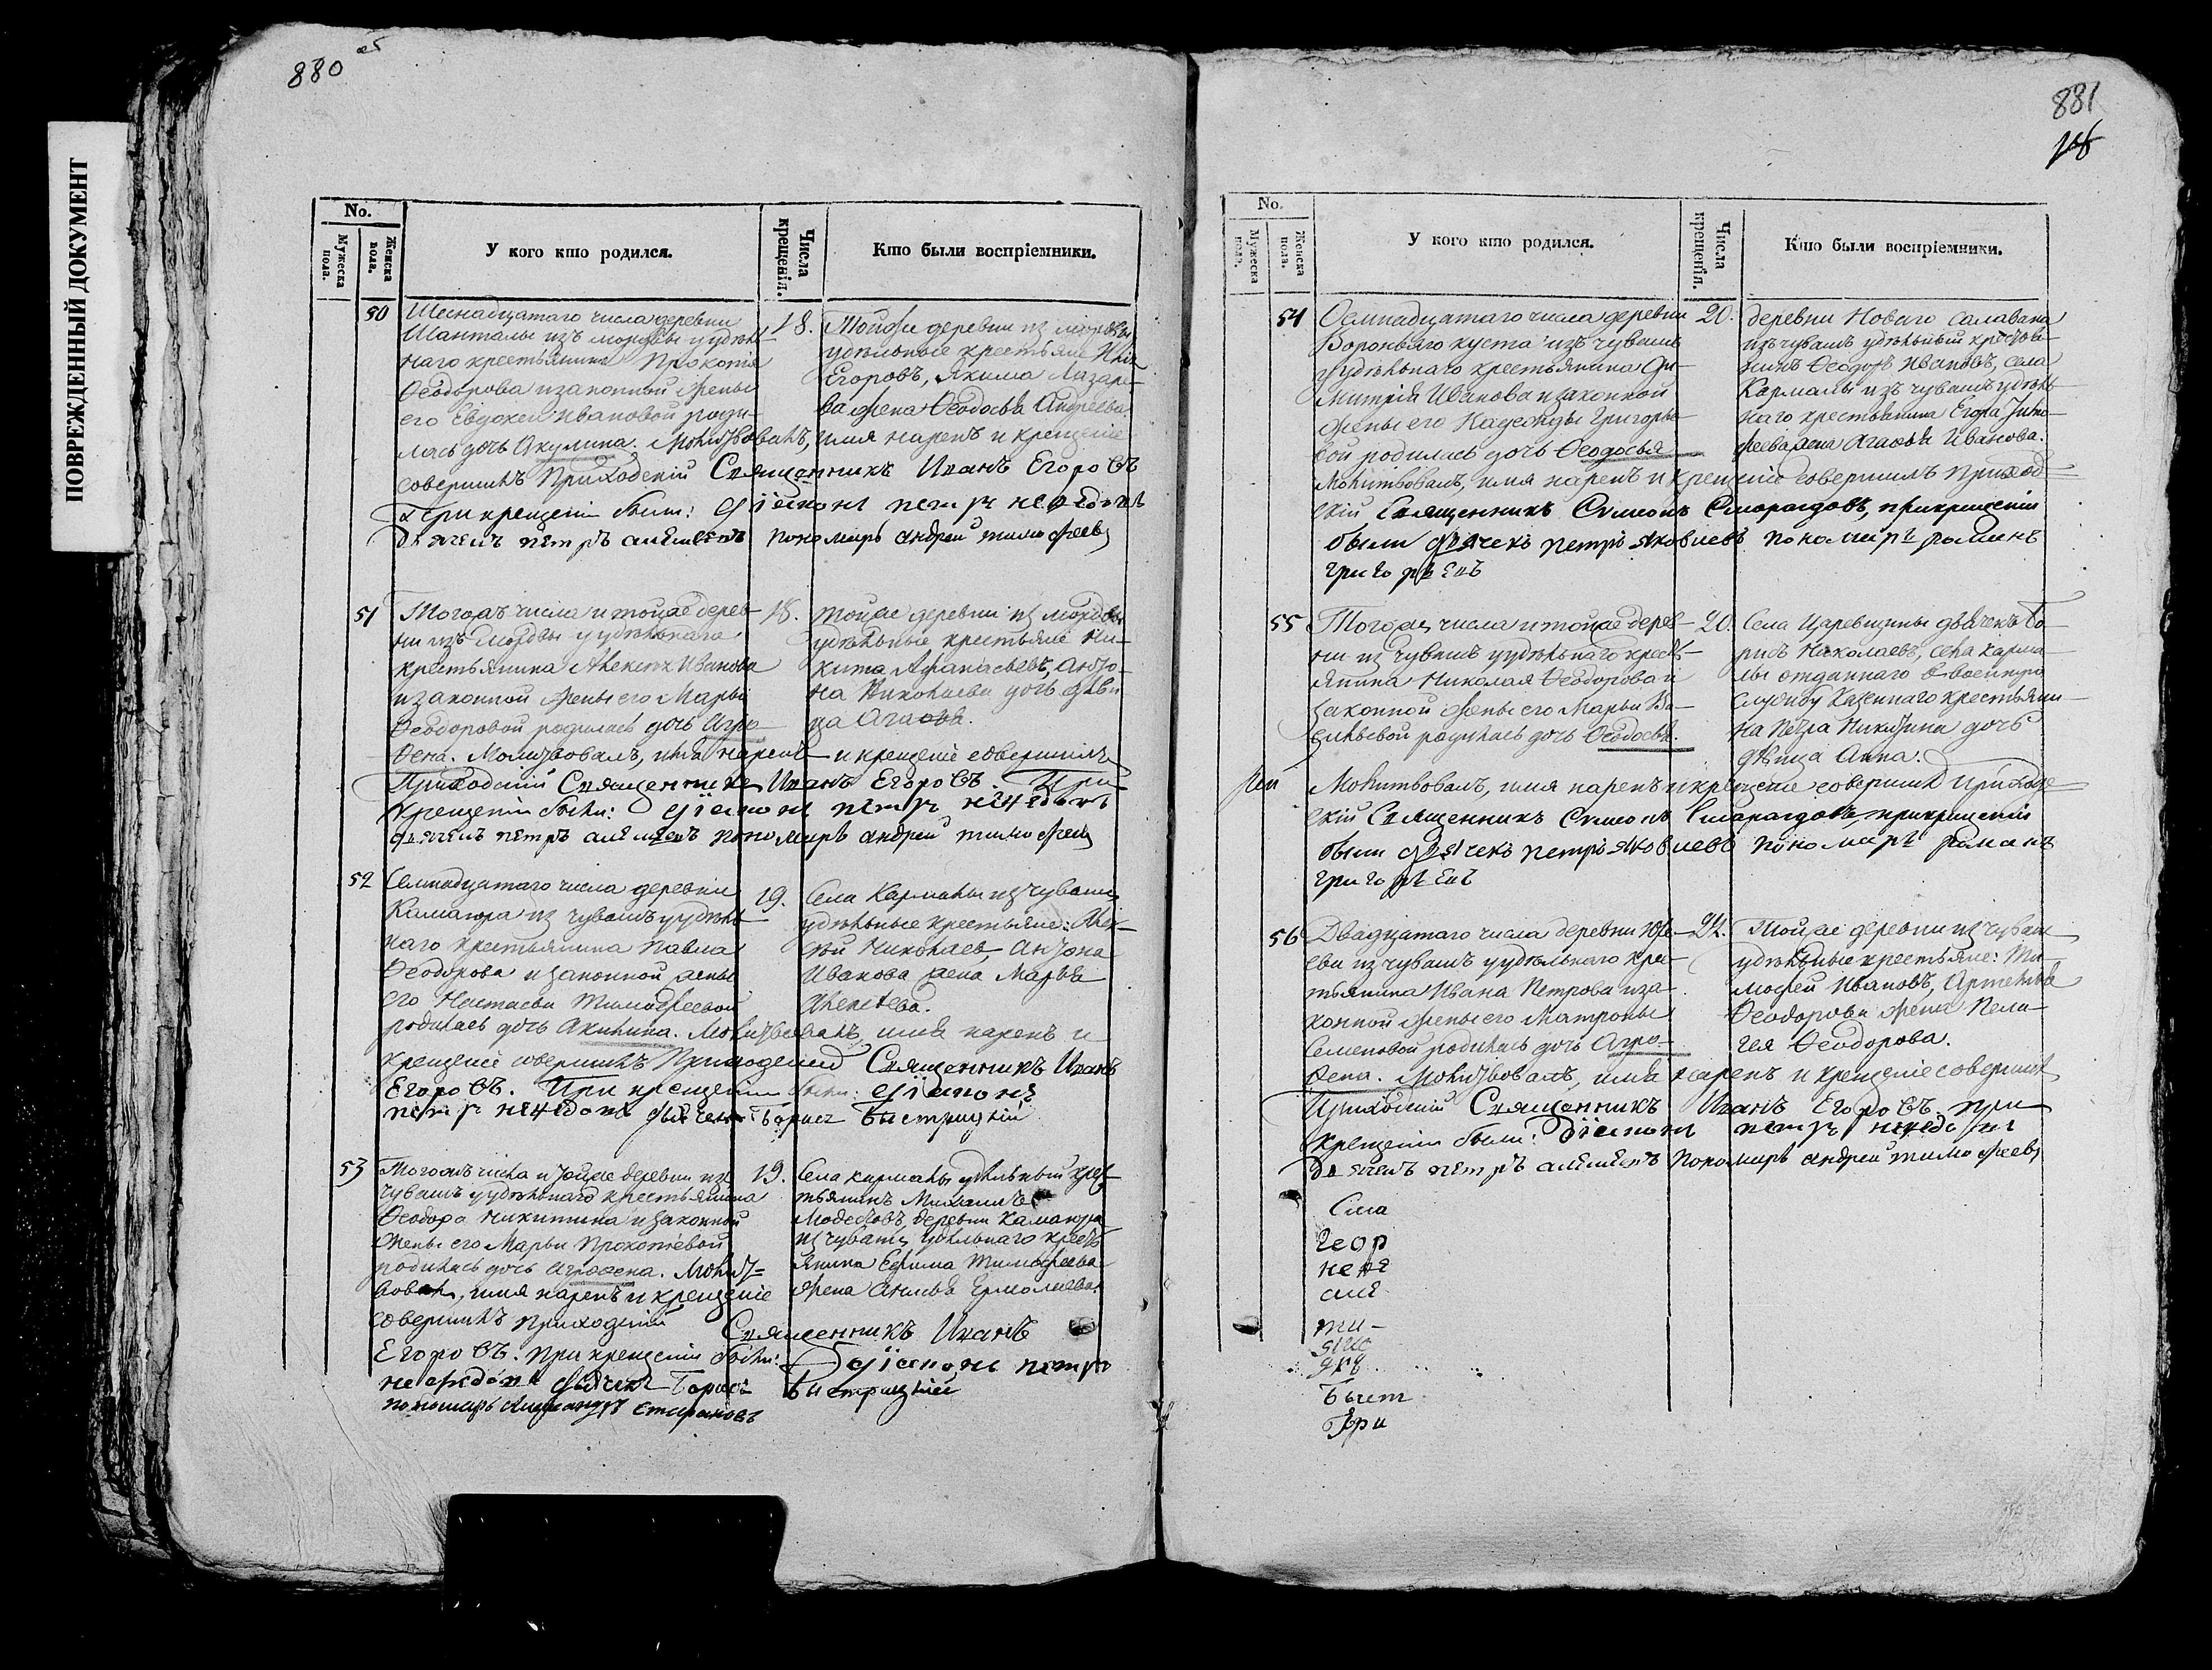 ПОВРЕЖДЕННЫЙ ДОКУМЕНТ
880 об
No.
Мужеска пола.
Женска пола.
У кого кто родился.
Числа крещенія.
Кто были воспріемники.
50
Шеснадцатаго числа деревни
Шанталы изъ мордвы у удѣль-
наго крестьянина Прокопія
Ѳеодорова и законной жены
его Евдокеи Ивановой роди-
лась дочь Акулина. Молитвовалъ, имя нарекъ и крещеніе
совершилъ Приходскій Священникъ Иванъ Егоровъ
При крещеніи были: діаконъ петръ
дьячекъ петръ пономарь андрей тимофеевъ
18.
Тойже деревни из мордвы
удѣльные крестьяне
Егоровъ, Якима Лазаре-
ва жена Ѳеодосья Андреева
51
Тогожъ числа и тойже дерев-
ни изъ мордвы у удѣльнаго
крестьянина Алексея Иванова
и законной жены его Марьи
Ѳеодоровой родилась дочь Агро-
ѳена. Молитвовалъ, имя нарекъ и крещеніе совершилъ
Приходскій Священникъ Иванъ Егоровъ. При
крещеніи были: діаконъ петръ
дьячекъ петръ пономарь андрей тимофеевъ
18.
тойже деревни из мордвы
удѣльные крестьяне Ни-
кита Афанасьевъ, Анто-
на Николаева дочь дѣви-
ца Агаѳья.
52
Семнадцатаго числа деревни
Камаюра из чувашъ у удѣль-
наго крестьянина Павла
Ѳеодорова и законной жены
его Настасьи Тимофеевой
родилась дочь Акилина. Молитвовалъ, имя нарекъ и
крещеніе совершилъ Приходской Священникъ Иванъ
Егоровъ. При крещеніи были: діаконъ
петръ дьячекъ Борисъ Быстрицкій
19.
Села Кармалы из чувашъ
удѣльные крестьяне: Алек-
сѣй Николаевъ, Антона
Иванова жена Марья
Алексѣева.
53
Тогожъ числа и тойже деревни изъ
чувашъ у удѣльнаго крестьянина
Ѳеодора Никитина и законной
жены его Марьи Прокопьевой
родилась дочь Агроѳена. Молит-
вовалъ, имя нарекъ и крещеніе
совершилъ Приходскій Священникъ Иванъ
Егоровъ. при крещеніи были: діаконъ петръ
дьячекъ Борисъ Быстрицкій
пономарь
19.
Села кармалы удѣльный крес-
тьянинъ Михаилъ
Модестовъ, деревни Камаюра
из чувашъ удѣльнаго кресть-
янина Ефима Тимофеева
жена Ермолаева.
881
No.
Мужеска пола.
Женска пола.
У кого кто родился.
Числа крещенія.
Кто были воспріемники.
54
Осмнадцатаго числа деревни
Вороньяго куста изъ чувашъ
у удѣльнаго крестьянина Ди-
митрія Иванова и законной
жены его Надежды Григорье-
вой родилась дочь Ѳеодосья
Молитвовалъ, имя нарекъ и крещеніе совершилъ Приход-
скій Священникъ Симеонъ Смарагдовъ, при крещеніи
были дьячекъ петръ яковлевъ пономарь романъ
григорьевъ
20.
деревни Новаго Салавана
изъ чувашъ удѣльный крестья-
нинъ Ѳеодоръ Ивановъ, села
Кармалы изъ чувашъ удѣль-
наго крестьянина Егора Тимо-
феева жена Агаѳья Иванова.
55
Тогожъ числа и тойже дерев-
ни из чувашъ у удѣльнаго кресть-
янина Николая Ѳеодорова и
законной жены его Марьи Ва-
сильевой родилась дочь Ѳеодосья.
Молитвовалъ, имя нарекъ и крещеніе совершилъ Приход-
скій Священникъ Симеонъ Смарагдовъ, при крещеніи
были дьячекъ петръ яковлевъ пономарь романъ
григорьевъ
20.
Села Царевщины дьячекъ Бо-
рисъ Николаевъ, села карма-
лы отданнаго в военную
службу Казеннаго крестьяни-
на Петра Никитина дочь
дѣвица Анна.
56
Двадцатаго числа деревни
из чувашъ у удѣльнаго крес-
тьянина Ивана Петрова и за-
конной жены его Матроны
Семеновой родилась дочь Агро-
ѳена. Молитвовалъ, имя нарекъ и крещеніе совершилъ
Приходскій Священникъ Иванъ Егоровъ. при
крещеніи были: діаконъ петръ
дьячекъ петръ пономарь андрей тимофеевъ
Тойже деревни из чувашъ
удѣльные крестьяне: Ти-
мофей Ивановъ, Артемья
Ѳеодорова жена Пела-
гея Ѳеодорова.
Сма
Геор
ти-
Быст
Гри